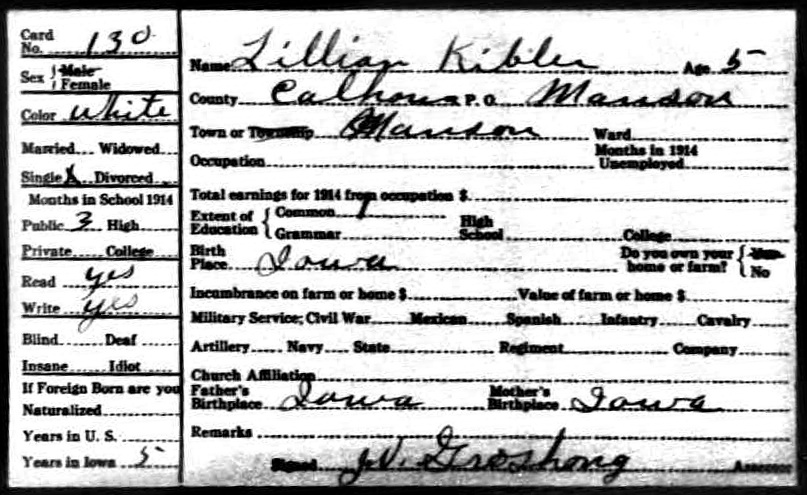 Card No. 130
Sex Male Female
Color White
Married Widowed
Single X Divorced
Months in School 1914
Public 3 High
Private College
Read yes
Write yes
Blind Deaf
Insane Idiot
If Foreign Born are you
Naturalized
Years in U. S.
Years in Iowa 5
Name Lillian Kibler Age 5
County Calhoun P. O. Manson
Town or Township Manson Ward
Occupation Months in 1914 Unemployed
Total earnings for 1914 from occupation $
Extent of Education Common 1
Grammar High School College
Birth Place Iowa Do you own your home or farm? Yes No
Incumbrance on farm or home $ Value of farm or home $
Military Service; Civil War Mexican Spanish Infantry Cavalry
Artillery Navy State Regiment Company
Church Affiliation
Father's Birthplace Iowa Mother's Birthplace Iowa
Remarks
Signed J.V. Groshong Assessor